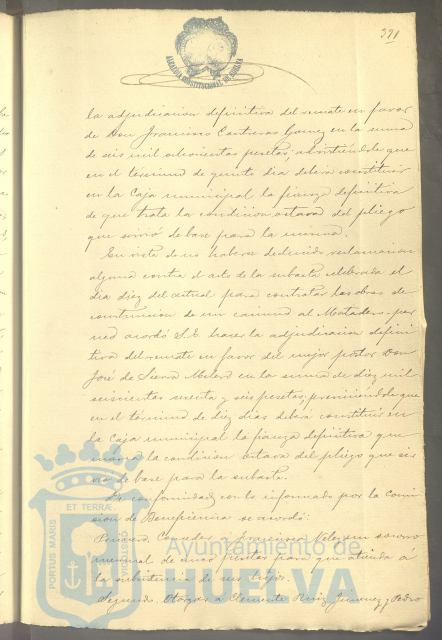 391
ALCALDIA CONSTITUCIONAL DE HUELVA
la adjudicacion definitiva del remate en favor
de Don Francisco Contreras Gomez en la suma
de seis mil ochocientas pesetas, advirtiendole que
en el término de quinto dia deberá constituir
en la Caja municipal la fianza definitiva
de que trata la condicion octava del pliego
que sirvió de base para la misma.
En vista de no haberse deducido reclamacion
alguna contra el acto de la subasta celebrada el
dia diez del actual para contratar las obras de
construccion de un camino al Matadero
acordó S.E. hacer la adjudicacion defini
tiva del remate en favor del mejor postor Don
José de Sierra en la suma de diez mil
y seis pesetas, previniendole que
en el término de diez dias deberá constituir en
la Caja municipal la fianza definitiva que
marca la condicion octava del pliego que sir
vió de base para la subasta.
De conformidad con lo informado por la Comi
sion de Beneficencia se acordó:
Primero. Conceder a Francisco un socorro
mensual de pesetas para que atienda á
la subsistencia de sus hijos.
Segundo. Otorgar a Clemente Ruiz Jimenez y Pedro
PORTUS MARIS
ET TERRÆ
CUSTODIA
Ayuntamiento de
HUELVA